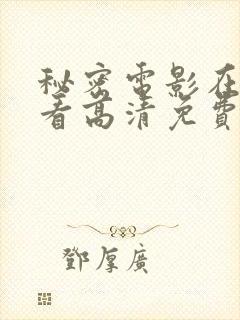 秘密電影在
看高清免費
鄧厚廣